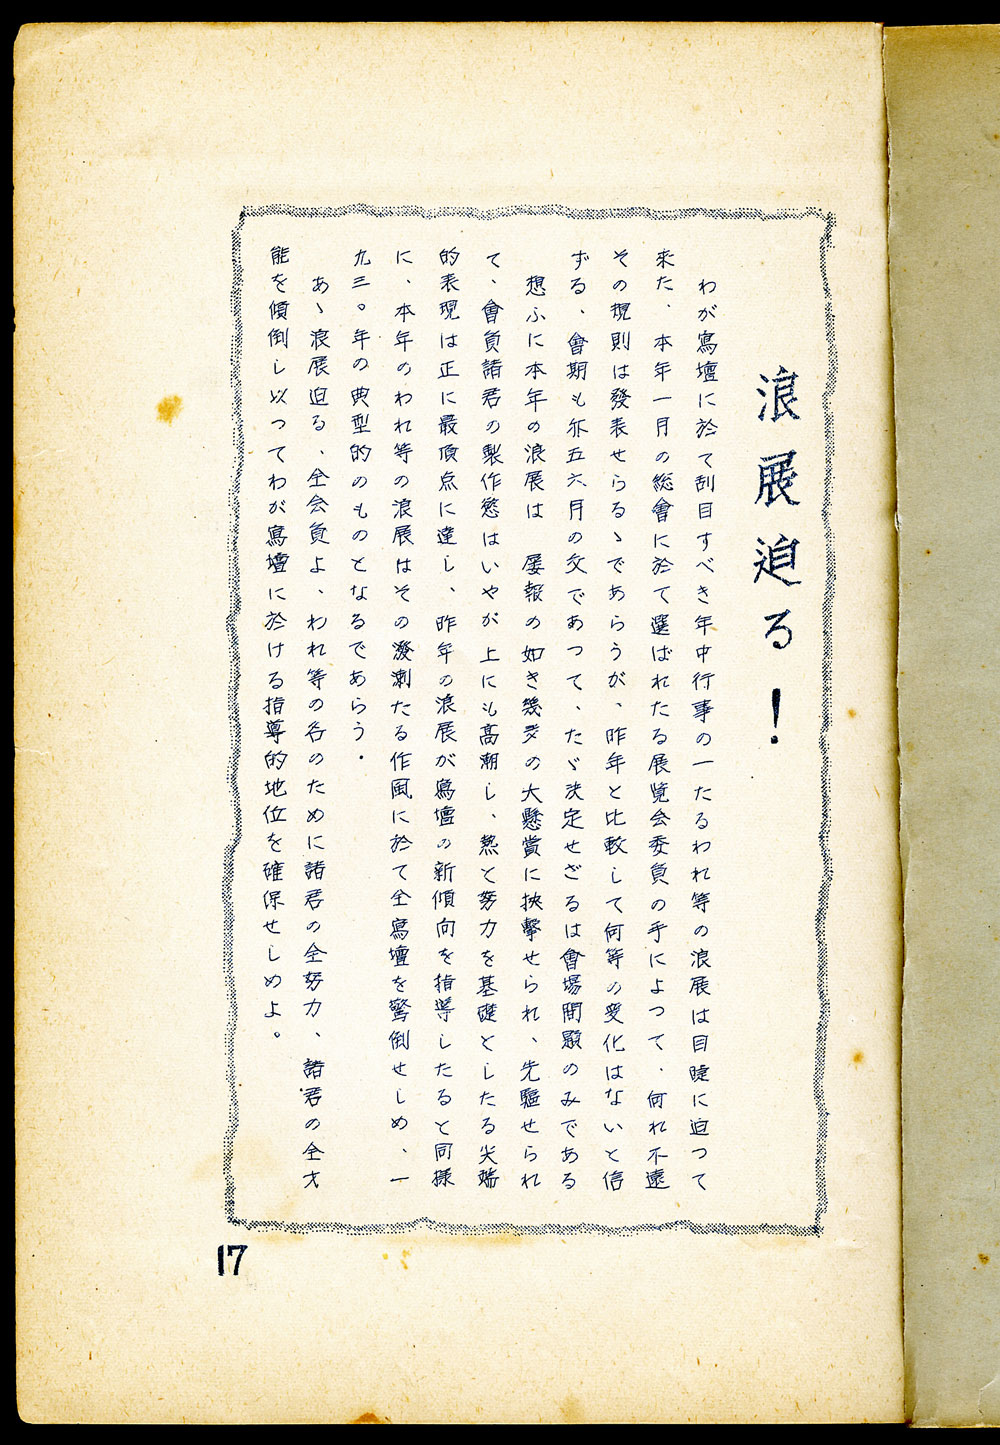 浪展迫る！
わが寫壇に於て刮目すべき年中行事の一たるわれ等の浪展は目睫に迫つて
来た、本年一月の総會に於て選ばれたる展覧会委負の手によつて、何れ不遠
その規則は發表せらるゝであらうが、昨年と比較して何等の変化はないと信
ずる、會期も亦五六月の交であつて、たゞ決定せざるは會場問題のみである
想ふに本年の浪展は　屡報の如き幾多の大懸賞に挾擊せられ、先驅せられ
て、會負諸君の製作慾はいやが上にも高潮し、熱と努力を基礎としたる尖端
的表現は正に最頂点に達し、昨年の浪展が寫壇の新傾向を指導したると同様
に、本年のわれ等の浪展はその潑溂たる作風に於て全寫壇を驚倒せしめ、一
九三〇年の典型的のものとなるであらう．
あゝ浪展迫る、全会負よ、われ等の各のために諸君の全努力、諸君の全才
能を傾倒し以つてわが寫壇に於ける指導的地位を確保せしめよ。
17